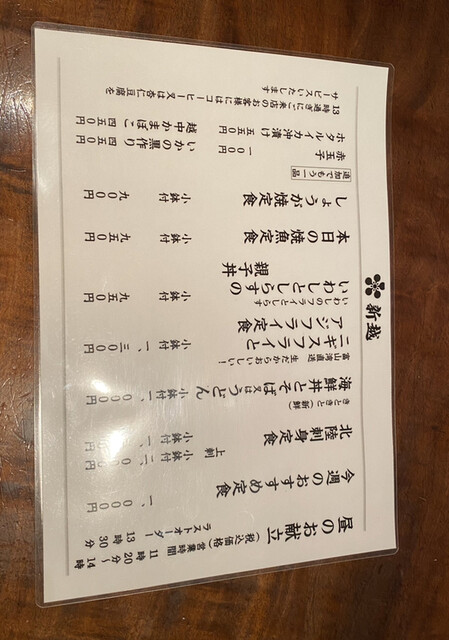 昼のお献立
(税込価格)営業時間 11時20分〜14時
ラストオーダー 13時30分
今週のおすすめ定食 一、〇〇〇円
北陸刺身定食 小鉢付
上刺 小鉢付
ときときと(新鮮)
海鮮丼とそば又はうどん 小鉢付
富山湾直送 生だからおいしい!
ニギスフライと
アジフライ定食 小鉢付 一、三〇〇円
いわしのフライとしらす
いわしとしらすの
親子丼 小鉢付 九五〇円
本日の焼魚定食 小鉢付 九五〇円
しょうが焼定食 小鉢付 九〇〇円
追加でもう一品
赤玉子 一〇〇円
いかの黒作り 四五〇円
ホタルイカ沖漬け 五五〇円
越中かまぼこ 四五〇円
13時過ぎにご来店のお客様にはコーヒー又は杏仁豆腐を
サービスいたします
新越